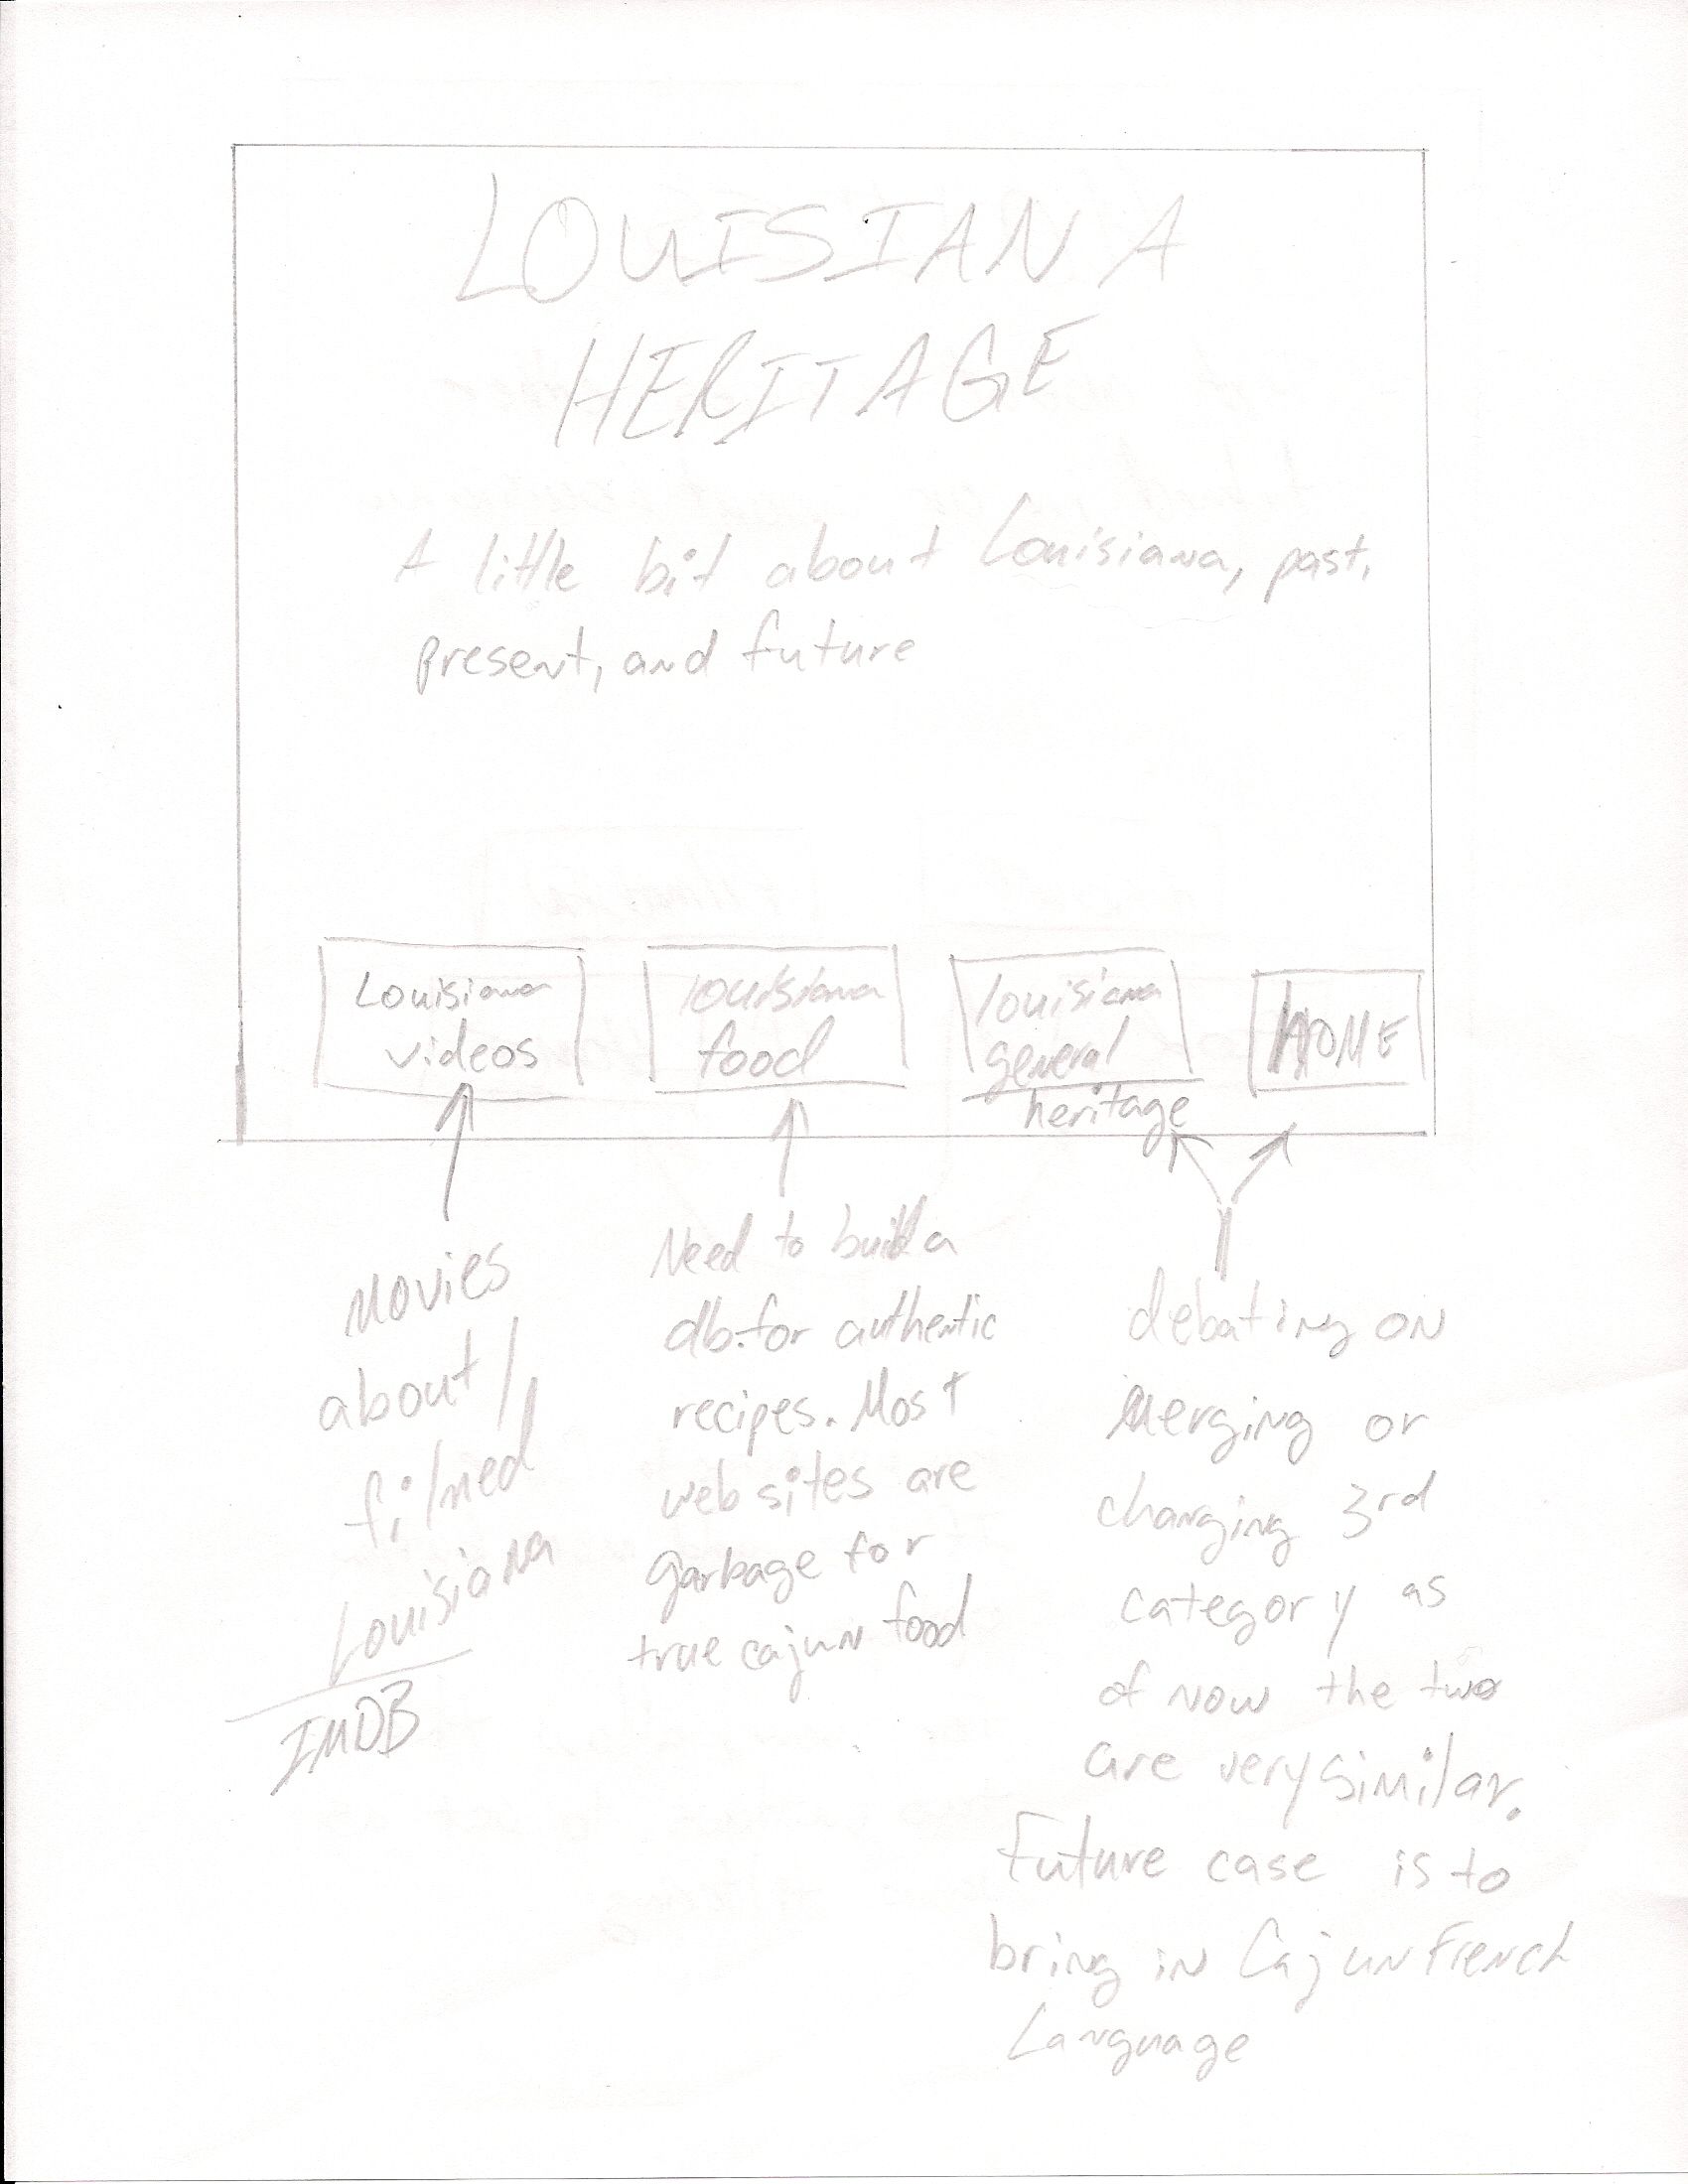 LOUISIANA
HERITAGE
A little bit about Louisiana, past,
present, and future
Louisiana
videos
louisiana
food
louisiana
general
heritage
HOME
Movies
about/
filmed
Louisiana
IMDB
Need to build a
db. for authentic
recipes. Most
web sites are
garbage for
true cajun food
debating on
Merging or
changing 3rd
category as
of now the two
are very similar.
Future case is to
bring in Cajun French
Language